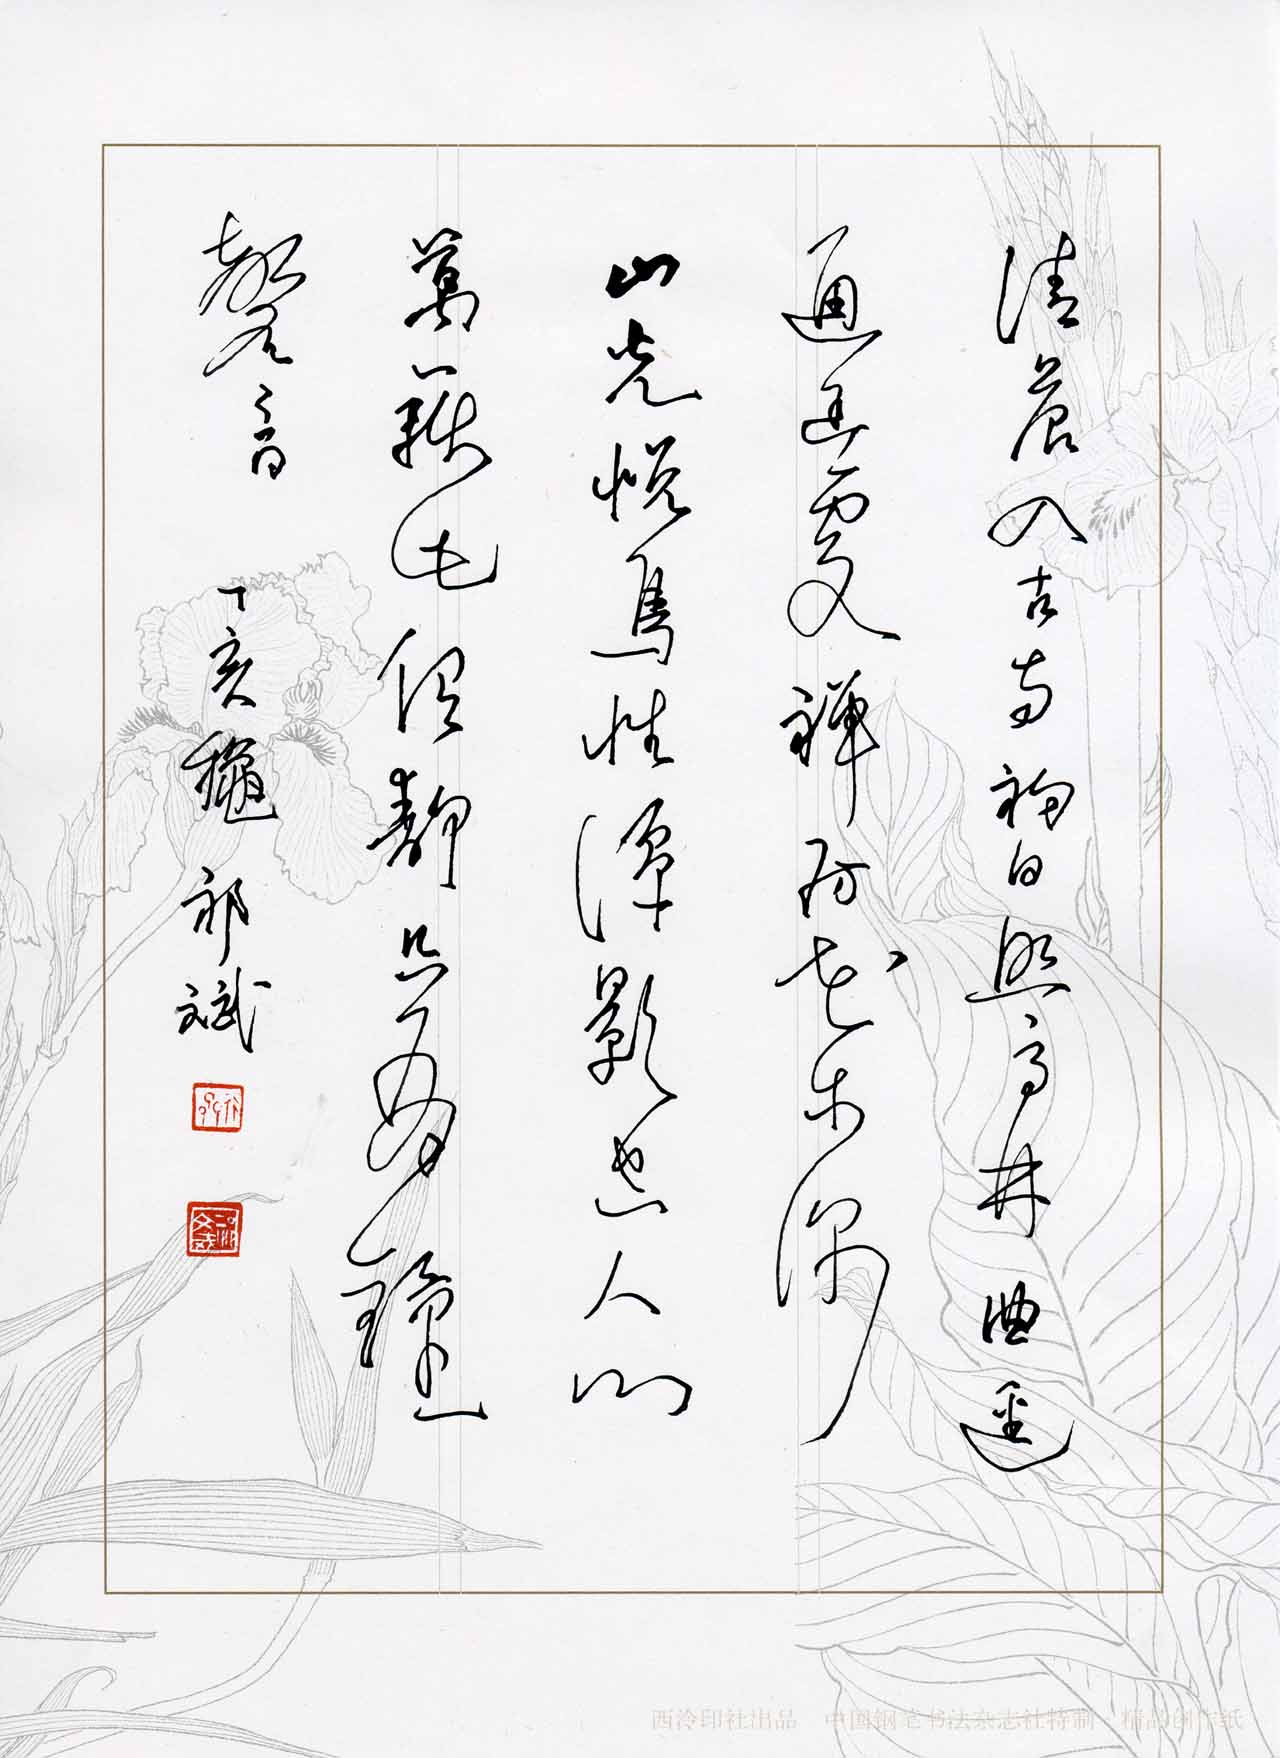 清晨入古寺初日照高林曲逕
通幽處禪房花木深
山光悅鳥性潭影空人心
萬籟此俱靜只餘鐘
磬音 丁亥龝 祁斌
西泠印社出品 中国钢笔书法杂志社特制·精品创作纸